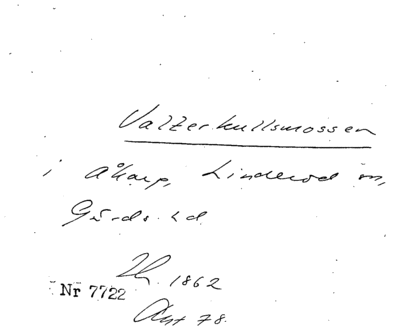 Valzerkullsmossen
i Åkarp, Linderöd sn,
Gärds hd
1862
Nr 7722
Akt 78.